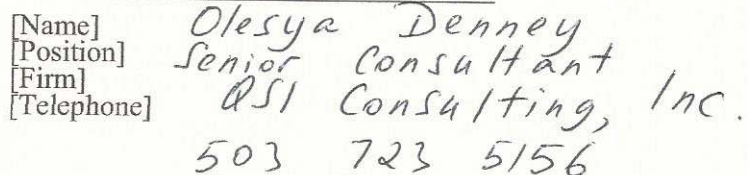 [Name] Olesya Denney
[Position] Senior Consultant
[Firm] QSI Consulting, Inc.
[Telephone] 503 723 5156